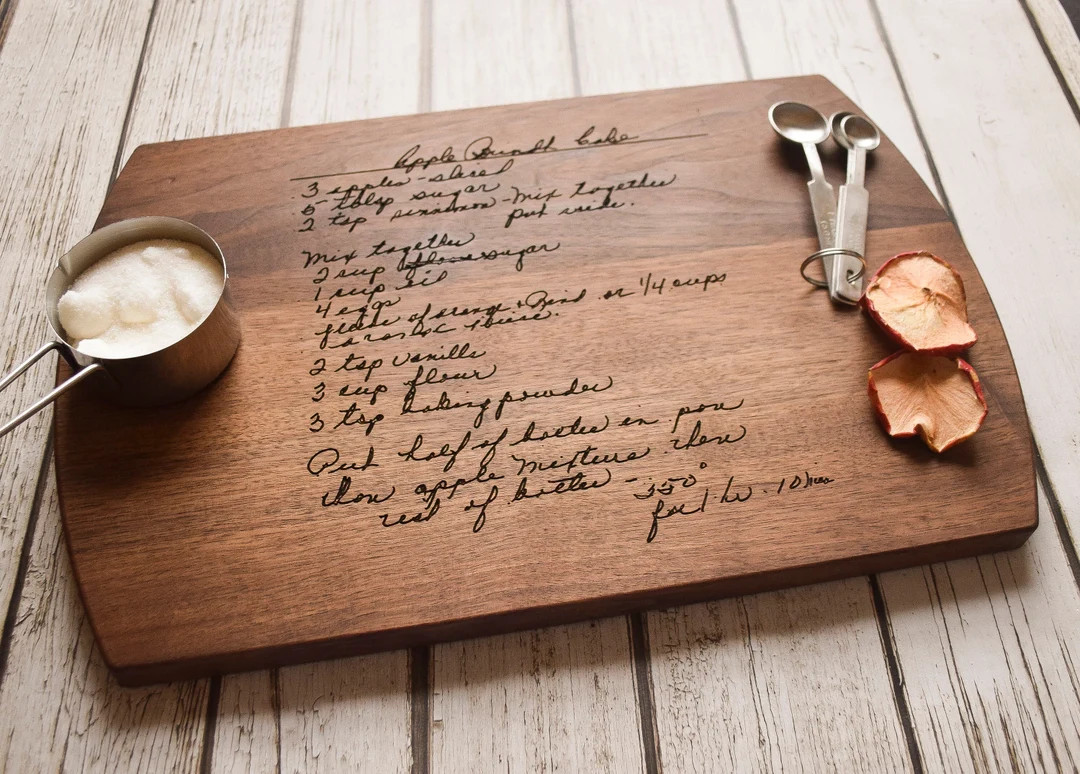 Apple Bundt Cake
3 apples - sliced
5 tblsp sugar
2 tsp sinnamon - Mix together
put aside.
Mix together
2 cup sugar
1 cup oil
4 eggs
juice of orange + Rind or 1/4 cups
orange juice.
2 tsp vanilla
3 cup flour
3 tsp baking powder
Put half of batter in pan
then apple mixture then
rest of batter -
350°
for 1 hr. 10